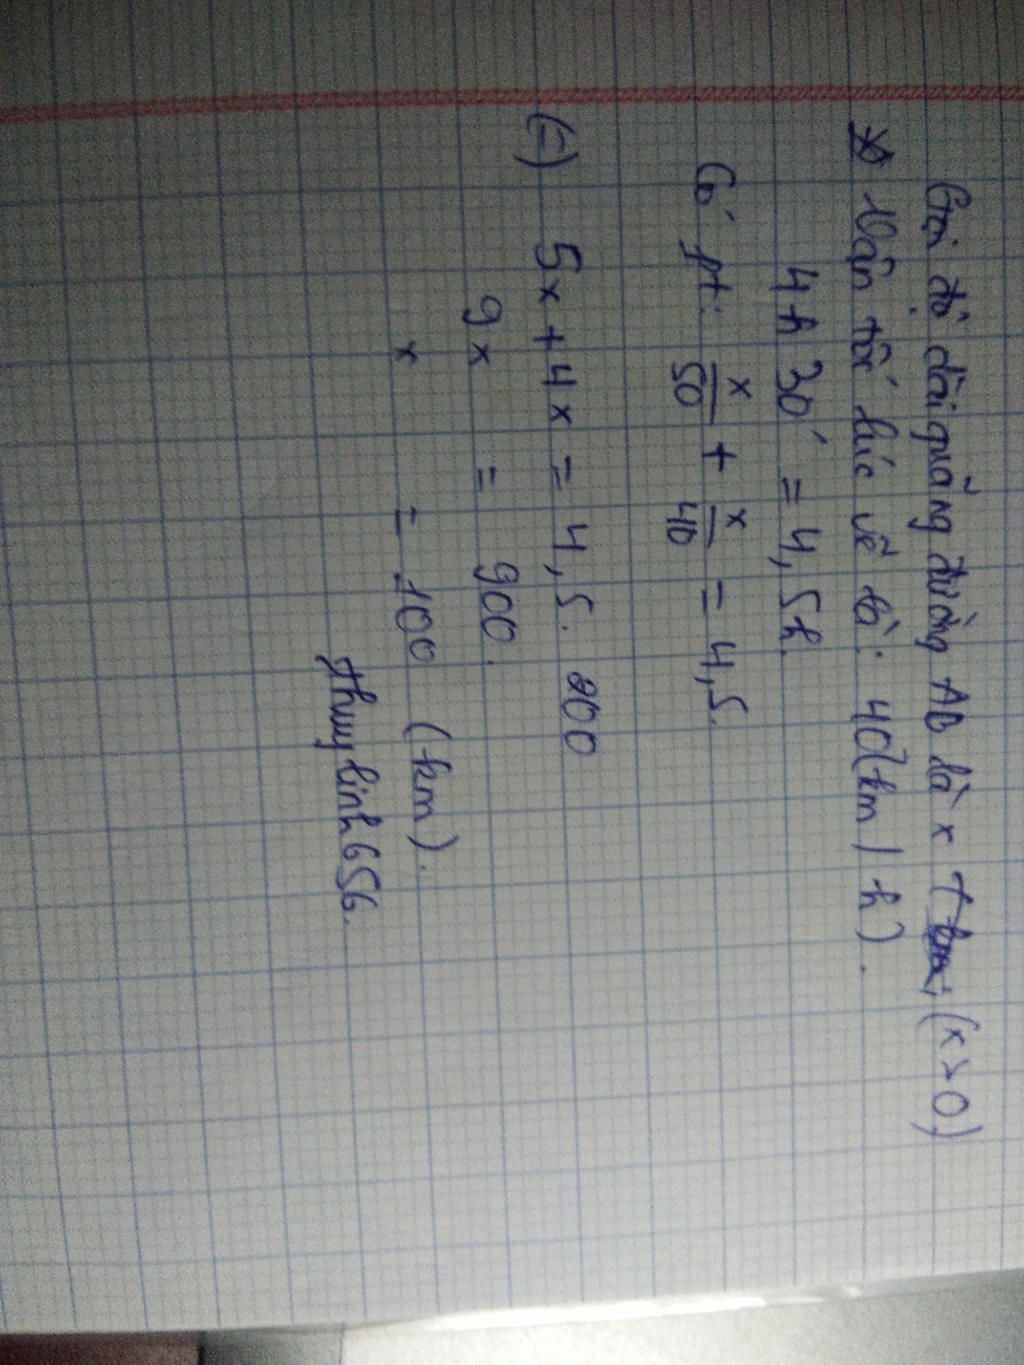 Gọi độ dài quãng đường AB là x (x > 0)
Vận tốc lúc về là: 40 (km / h).
4h 30' = 4,5h.
Có pt: x/50 + x/40 = 4,5.
(=) 5x + 4x = 4,5. 200
9x = 900.
x = 100 (km).
Thuy linh 656.